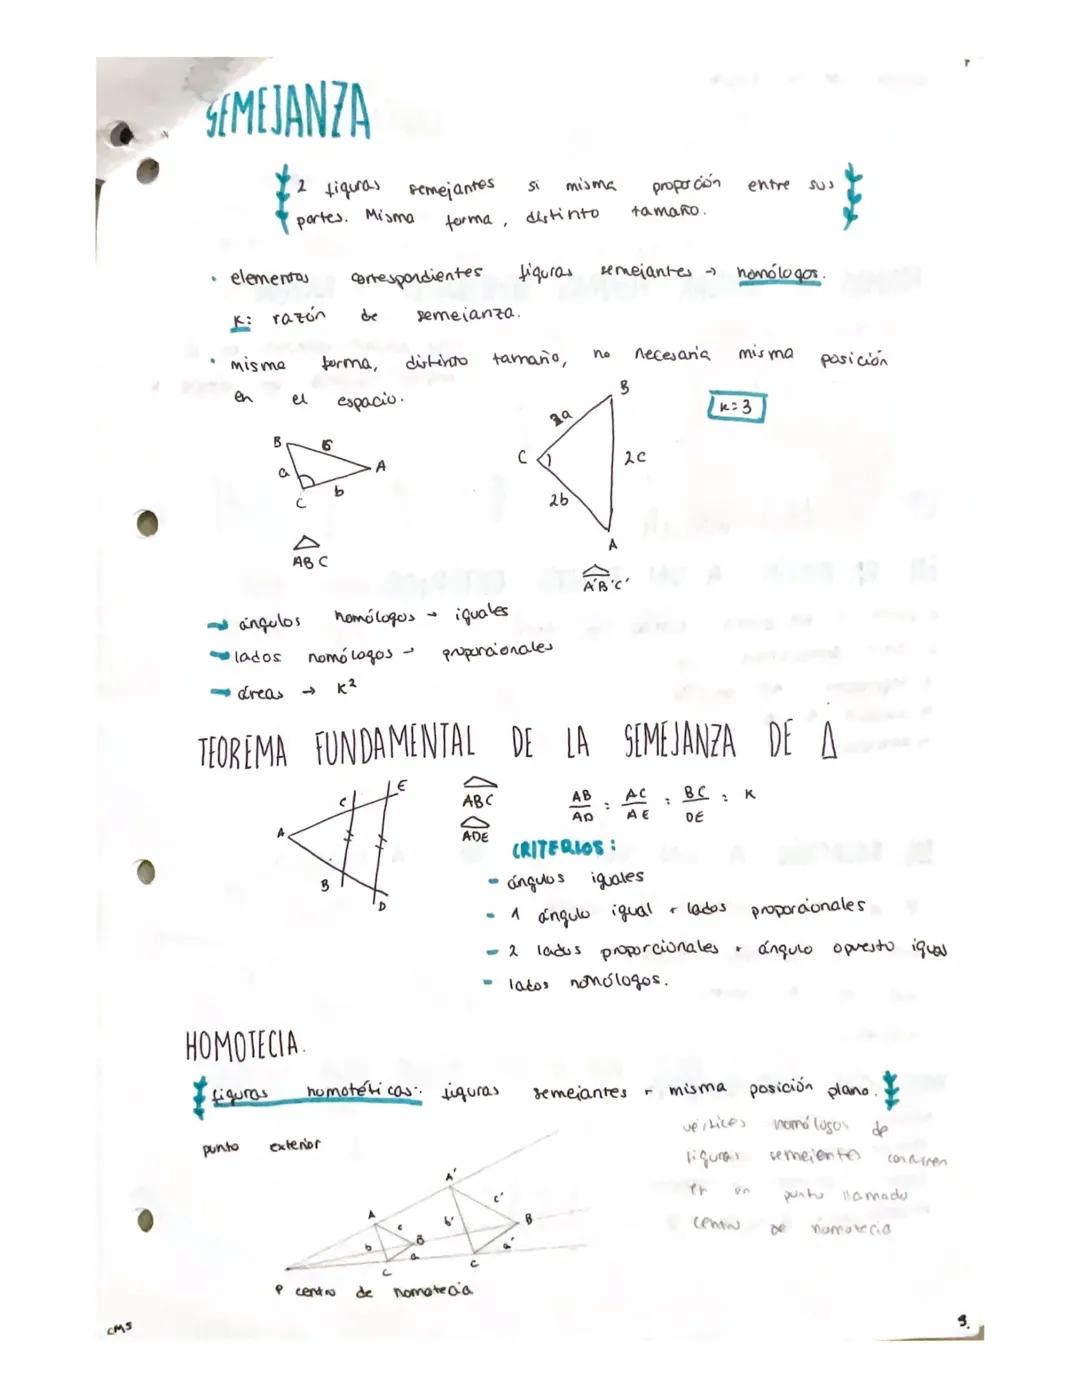 SEMEJANZA
2 figuras semejantes si misma proporción entre sus
partes. Misma forma, distinto tamaño.
• elementos correspondientes figuras semejantes → homólogos.
K: razón de semejanza.
• misma forma, distinto tamaño, no necesaria misma posición
en el espacio.
k=3
B
a
A
C
b
B
2a
C
2c
2b
A
ABC
A'B'C'
→ ángulos homólogos → iguales
→ lados homólogos → proporcionales
→ áreas → K²
TEOREMA FUNDAMENTAL DE LA SEMEJANZA DE Δ
A
C
E
B
D
ABC
ADE
AB/AD = AC/AE = BC/DE = K
CRITERIOS:
- ángulos iguales
- 1 ángulo igual + lados proporcionales
- 2 lados proporcionales + ángulo opuesto igual
- lados homólogos.
HOMOTECIA.
figuras homotéticas: figuras semejantes + misma posición plano.
punto exterior
vértices homólogos de
figuras semejantes concurren
en un punto llamado
centro de homotecia
A'
c'
A
c
b'
B
b
B
a
a'
C
C
P centro de homotecia
CMS
9.